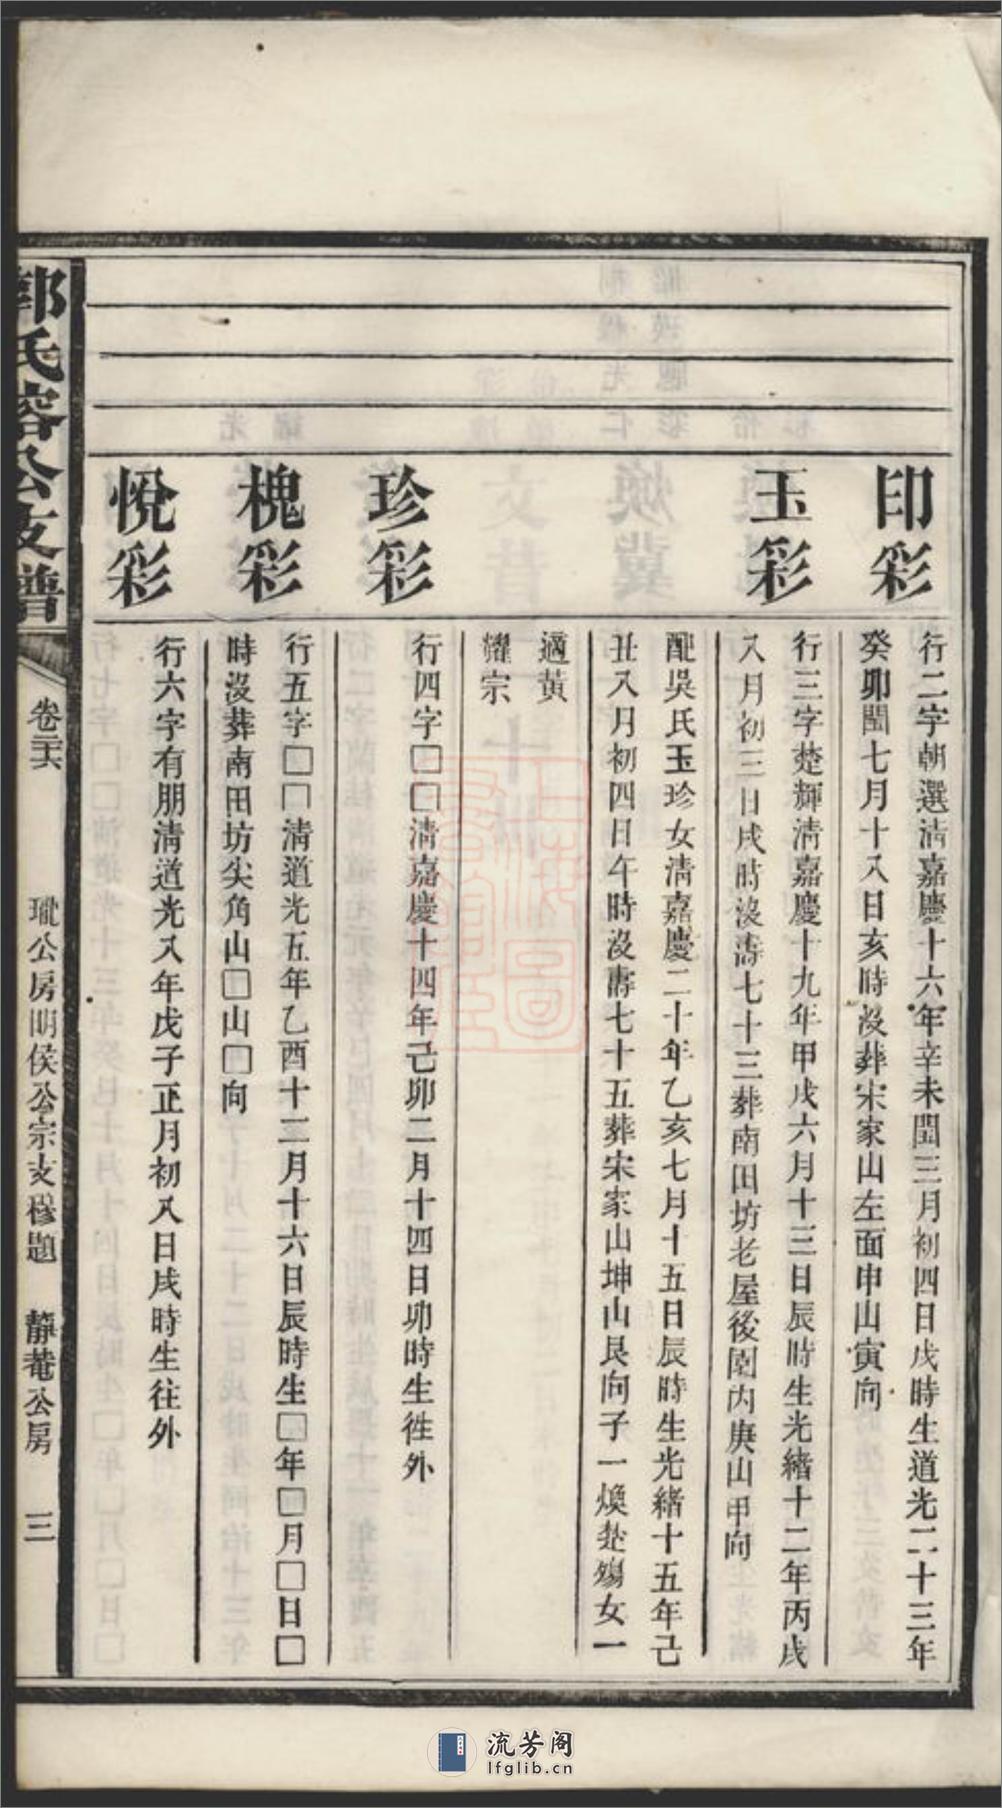 印彩
行二字朝選清嘉慶十六年辛未閏三月初四日戌時生道光二十三年
癸卯閏七月十八日亥時沒葬宋家山左面申山寅向
玉彩
行三字楚輝清嘉慶十九年甲戌六月十三日辰時生光緒十二年丙戌
八月初三日戌時沒壽七十三葬南田坊老屋後園內庚山甲向
配吳氏玉珍女清嘉慶二十年乙亥七月十五日辰時生光緒十五年己
丑八月初四日午時沒壽七十五葬宋家山坤山艮向子一煥赴殤女一
適黃
耀宗
珍彩
行四字□□清嘉慶十四年己卯二月十四日卯時生徃外
槐彩
行五字□□清道光五年乙酉十二月十六日辰時生□年□月□日□
時沒葬南田坊尖角山□山□向
悅彩
行六字有朋清道光八年戊子正月初八日戌時生往外
郭氏容公支譜
卷三六
公房明侯公宗支穆題
靜菴公房
三
流芳阁
lfglib.cn